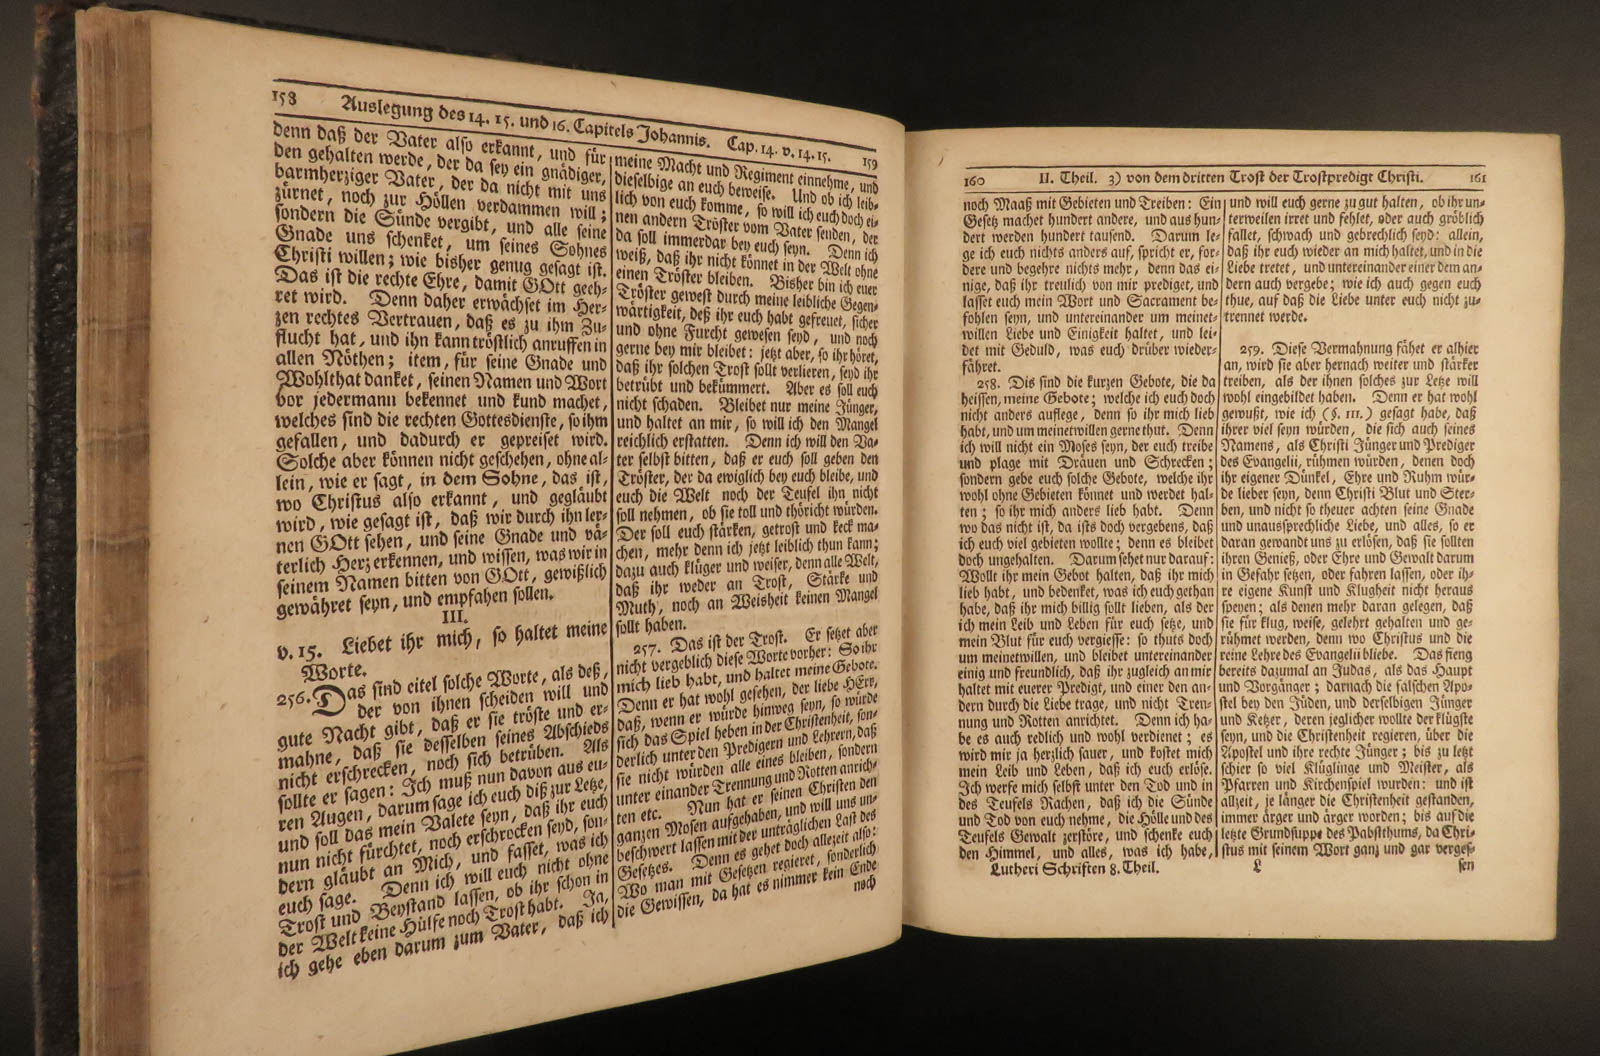 158 Auslegung des 14. 15. und 16. Capitels Johannis. Cap. 14. v. 14. 15. 159
denn daß der Vater also erkannt, und für
den gehalten werde, der da sey ein gnädiger,
barmherziger Vater, der da nicht mit uns
zürnet, noch zur Höllen verdammen will;
sondern die Sünde vergibt, und alle seine
Gnade uns schenket, um seines Sohnes
Christi willen; wie bisher genug gesagt ist.
Das ist die rechte Ehre, damit GOtt geeh-
ret wird. Denn daher erwächset im Her-
zen rechtes Vertrauen, daß es zu ihm Zu-
flucht hat, und ihn kann tröstlich anruffen in
allen Nöthen; item, für seine Gnade und
Wohlthat danket, seinen Namen und Wort
vor jedermann bekennet und kund machet,
welches sind die rechten Gottesdienste, so ihm
gefallen, und dadurch er gepreiset wird.
Solche aber können nicht geschehen, ohne al-
lein, wie er sagt, in dem Sohne, das ist,
wo Christus also erkannt, und gegläubt
wird, wie gesagt ist, daß wir durch ihn ler-
nen GOtt sehen, und seine Gnade und vä-
terlich Herz erkennen, und wissen, was wir in
seinem Namen bitten von GOtt, gewißlich
gewähret seyn, und empfahen sollen.
III.
v. 15. Liebet ihr mich, so haltet meine
Worte.
256. Das sind eitel solche Worte, als deß,
der von ihnen scheiden will und
gute Nacht gibt, daß er sie tröste und er-
mahne, daß sie desselben seines Abschieds
nicht erschrecken, noch sich betrüben. Als
sollte er sagen: Ich muß nun davon aus eu-
ren Augen, darum sage ich euch diß zur Letze,
und soll das mein Valete seyn, daß ihr euch
nun nicht fürchtet, noch erschrocken seyd, son-
dern gläubt an Mich, und fasset, was ich
euch sage. Denn ich will euch nicht ohne
Trost und Beystand lassen, ob ihr schon in
der Welt keine Hülfe noch Trost habt. Ja,
ich gehe eben darum zum Vater, daß ich
meine Macht und Regiment einnehme, und
dieselbige an euch beweise. Und ob ich leib-
lich von euch komme, so will ich euch doch ei-
nen andern Tröster vom Vater senden, der
da soll immerdar bey euch seyn. Denn ich
weiß, daß ihr nicht könnet in der Welt ohne
einen Tröster bleiben. Bisher bin ich euer
Tröster gewest durch meine leibliche Gegen-
wärtigkeit, deß ihr euch habt gefreuet, sicher
und ohne Furcht gewesen seyd, und noch
gerne bey mir bleibet: jetzt aber, so ihr höret,
daß ihr solchen Trost sollt verlieren, seyd ihr
betrübt und bekümmert. Aber es soll euch
nicht schaden. Bleibet nur meine Jünger,
und haltet an mir, so will ich den Mangel
reichlich erstatten. Denn ich will den Va-
ter selbst bitten, daß er euch soll geben den
Tröster, der da ewiglich bey euch bleibe, und
euch die Welt noch der Teufel ihn nicht
soll nehmen, ob sie toll und thöricht würden.
Der soll euch stärken, getrost und keck ma-
chen, mehr denn ich jetzt leiblich thun kann;
dazu auch klüger und weiser, denn alle Welt,
daß ihr weder an Trost, Stärke und
Muth, noch an Weisheit keinen Mangel
sollt haben.
257. Das ist der Trost. Er setzet aber
nicht vergeblich diese Worte vorher: So ihr
mich lieb habt, und haltet meine Gebote.
Denn er hat wohl gesehen, der liebe HErr,
daß, wenn er würde hinweg seyn, so würde
sich das Spiel heben in der Christenheit, son-
derlich unter den Predigern und Lehrern, daß
sie nicht würden alle eines bleiben, sondern
unter einander Trennung und Rotten anrich-
ten etc. Nun hat er seinen Christen den
ganzen Mosen aufgehaben, und will uns un-
beschwert lassen mit der unträglichen Last des
Gesetzes. Denn es gehet doch allezeit also:
Wo man mit Gesetzen regieret, sonderlich
die Gewissen, da hat es nimmer kein Ende
noch
160 II. Theil. 3) von dem dritten Trost der Trostpredigt Christi. 161
noch Maaß mit Gebieten und Treiben: Ein
Gesetz machet hundert andere, und aus hun-
dert werden hundert tausend. Darum le-
ge ich euch nichts anders auf, spricht er, for-
dere und begehre nichts mehr, denn das ei-
nige, daß ihr treulich von mir prediget, und
lasset euch mein Wort und Sacrament be-
fohlen seyn, und untereinander um meinet-
willen Liebe und Einigkeit haltet, und lei-
det mit Geduld, was euch drüber wieder-
fähret.
258. Dis sind die kurzen Gebote, die da
heissen, meine Gebote; welche ich euch doch
nicht anders auflege, denn so ihr mich lieb
habt, und um meinetwillen gerne thut. Denn
ich will nicht ein Moses seyn, der euch treibe
und plage mit Dräuen und Schrecken;
sondern gebe euch solche Gebote, welche ihr
wohl ohne Gebieten könnet und werdet hal-
ten; so ihr mich anders lieb habt. Denn
wo das nicht ist, da ists doch vergebens, daß
ich euch viel gebieten wollte; denn es bleibet
doch ungehalten. Darum sehet nur darauf:
Wollt ihr mein Gebot halten, daß ihr mich
lieb habt, und bedenket, was ich euch gethan
habe, daß ihr mich billig sollt lieben, als der
ich mein Leib und Leben für euch setze, und
mein Blut für euch vergiesse: so thuts doch
um meinetwillen, und bleibet untereinander
einig und freundlich, daß ihr zugleich an mir
haltet mit euerer Predigt, und einer den an-
dern durch die Liebe trage, und nicht Tren-
nung und Rotten anrichtet. Denn ich ha-
be es auch redlich und wohl verdienet; es
wird mir ja herzlich sauer, und kostet mich
mein Leib und Leben, daß ich euch erlöse.
Ich werfe mich selbst unter den Tod und in
des Teufels Rachen, daß ich die Sünde
und Tod von euch nehme, die Hölle und des
Teufels Gewalt zerstöre, und schenke euch
den Himmel, und alles, was ich habe,
und will euch gerne zu gut halten, ob ihr un-
terweilen irret und fehlet, oder auch gröblich
fallet, schwach und gebrechlich seyd: allein,
daß ihr euch wieder an mich haltet, und in die
Liebe tretet, und untereinander einer dem an-
dern auch vergebe; wie ich auch gegen euch
thue, auf daß die Liebe unter euch nicht zu-
trennet werde.
259. Diese Vermahnung fähet er alhier
an, wird sie aber hernach weiter und stärker
treiben, als der ihnen solches zur Letze will
wohl eingebildet haben. Denn er hat wohl
gewußt, wie ich (§. 111.) gesagt habe, daß
ihrer viel seyn würden, die sich auch seines
Namens, als Christi Jünger und Prediger
des Evangelii, rühmen würden, denen doch
ihr eigener Dünkel, Ehre und Ruhm wür-
de lieber seyn, denn Christi Blut und Ster-
ben, und nicht so theuer achten seine Gnade
und unaussprechliche Liebe, und alles, so er
daran gewandt uns zu erlösen, daß sie sollten
ihren Genieß, oder Ehre und Gewalt darum
in Gefahr setzen, oder fahren lassen, oder ih-
re eigene Kunst und Klugheit nicht heraus
speyen; als denen mehr daran gelegen, daß
sie für klug, weise, gelehrt gehalten und ge-
rühmet werden, denn wo Christus und die
reine Lehre des Evangelii bliebe. Das fieng
bereits dazumal an Judas, als das Haupt
und Vorgänger; darnach die falschen Apo-
stel bey den Jüden, und derselbigen Jünger
und Ketzer, deren jeglicher wollte der klügste
seyn, und die Christenheit regieren, über die
Apostel und ihre rechte Jünger; bis zu letzt
schier so viel Klüglinge und Meister, als
Pfarren und Kirchenspiel wurden: und ist
allzeit, je länger die Christenheit gestanden,
immer ärger und ärger worden; bis auf die
letzte Grundsuppe des Pabstthums, da Chri-
stus mit seinem Wort ganz und gar verges-
Lutheri Schriften 8. Theil. L sen